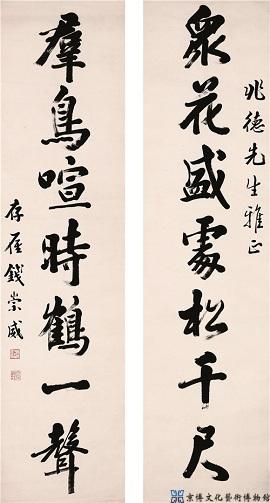 兆德先生雅正
眾花盛處松千尺
羣鳥喧時鶴一聲
存厓錢崇威
京博文化藝術博物館